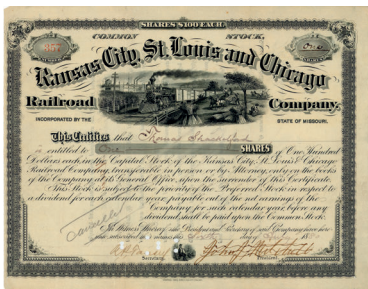 SHARES $100 EACH.
COMMON STOCK.
One
Kansas City, St. Louis and Chicago
Railroad Company,
INCORPORATED BY THE STATE OF MISSOURI.
This Certifies that Thomas
is entitled to One SHARES of One Hundred
Dollars each in the Capital Stock of the Kansas City, St. Louis & Chicago
Railroad Company, transferable in person or by Attorney, only on the books
of the Company at its General Office, upon the surrender of this Certificate.
This Stock is subject to the priority of the Preferred Stock in respect to
a dividend for each calendar year payable out of the net earnings of the
Company for such calendar year before any
dividend shall be paid upon the Common Stock.
Cancelled
In Witness Whereof the President and Secretary of said Company have here-
Secretary. President.